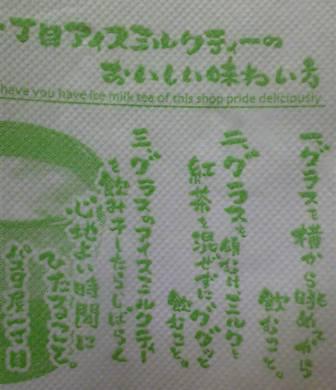 丁目アイスミルクティーの
おいしい味わい方
have you have ice milk tea of this shop pride deliciously
一、グラスを横から眺めながら
飲むこと。
二、グラスを傾むけミルクと
紅茶を混ぜずに、ググッと
飲むこと。
三、グラスのアイスミルクティー
を飲み干したらしばらく
心地よい時間に
ひたること。
丁目